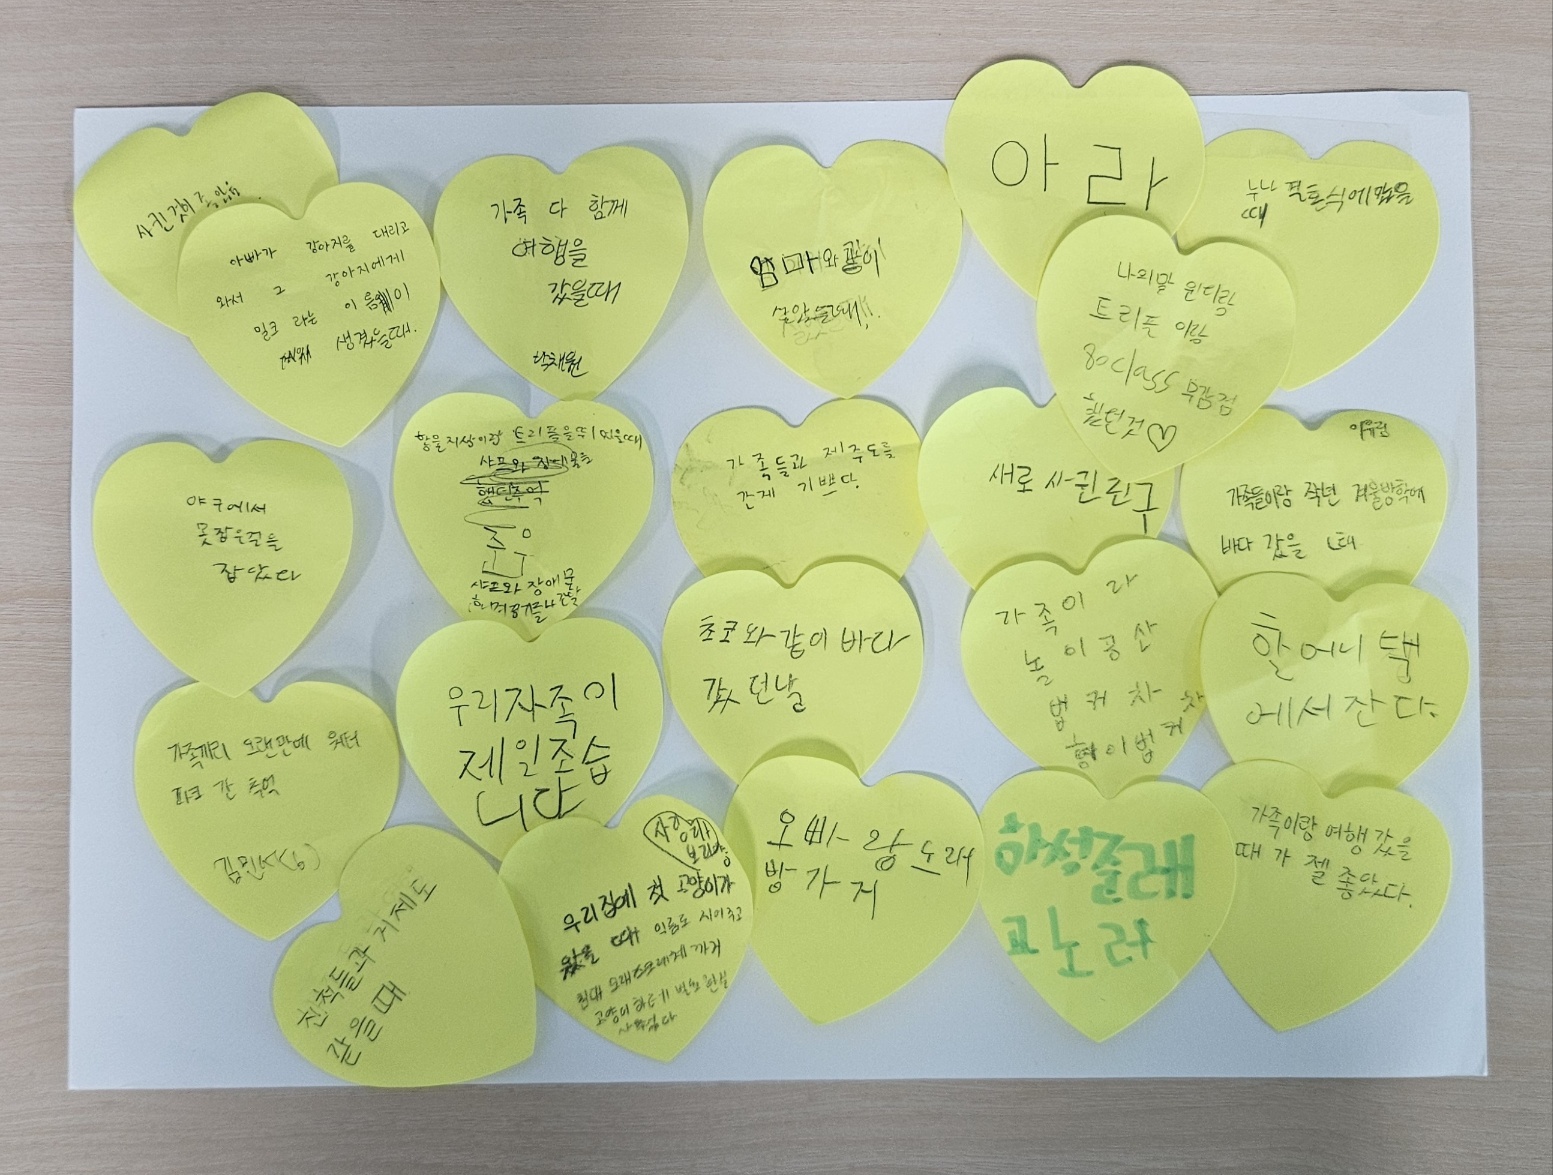 사귄것이
아빠가 강아지를 대리고
와서 그 강아지에게
밀크 라는 이름이
생겼을때.
가족 다 함께
여행을
갔을때
박채원
엄마와 같이
살았을때!!
아 라
누나 결혼식에 갔을
때
나의말 윈디랑
트리튼 이랑
80class 무감점
했던것♡
야구에서
못잡은걸을
잡았다
황물지상이랑 트리플을뛰었을때
샤프와 장애물을
했던추억
샤프와 장애물
가족들과 제주도를
간게 기쁘다.
새로 사귄친구
이유림
가족들이랑 작년 겨울방학에
바다 갔을 때
가족끼리 오랜만에 워터
파크 간 추억
우리자족이
제일조습
니다
초코와같이 바다
갔던날
가족이 라
놀이공산
범커차
형이범커차
할머니 댁
에서 잔다.
친척들과 거제도
갔을때
사랑해
보리야
우리집에 첫 고양이가
왔을 때 이름도 지어주고
오빠랑 노래
방가저
가족이랑 여행 갔을
때가 젤 좋았다.